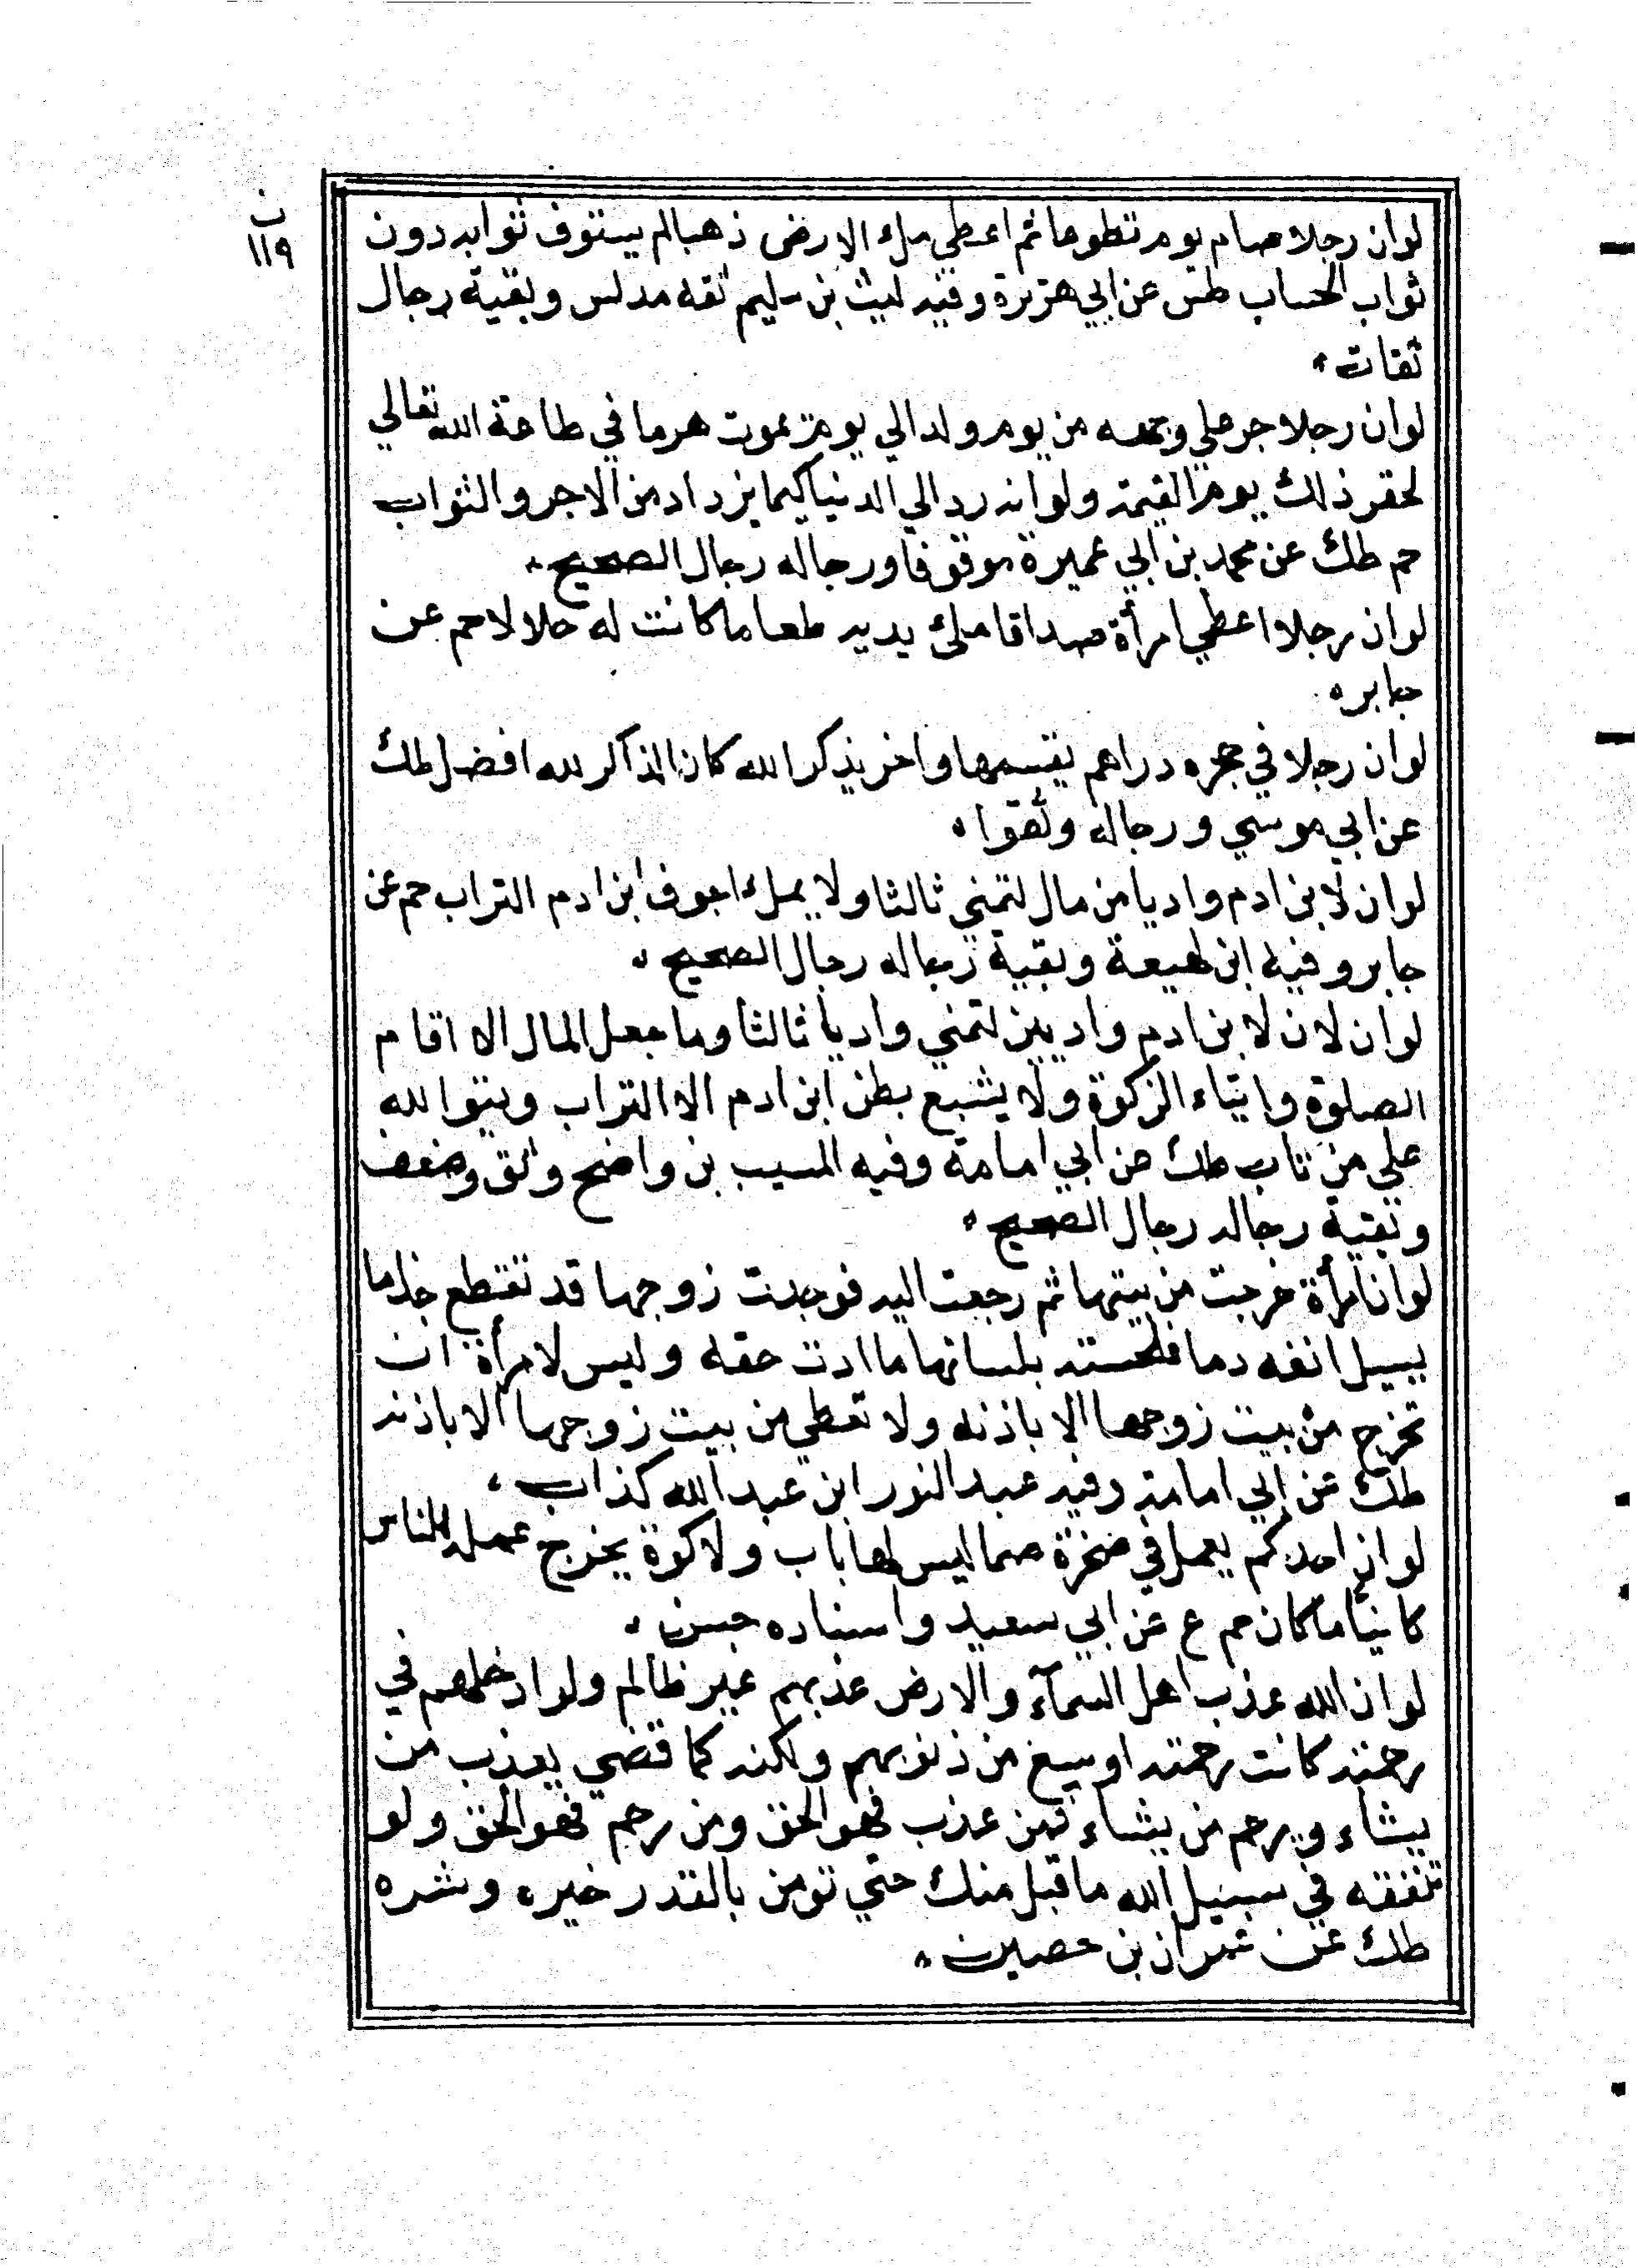 ن
١١٩
لوان رجلا صام يوم تطوعا ثم اعطي ملء الارض ذهبا لم يستوف ثوابه دون
ثواب الحساب طس عن ابي هريرة وفيه ليث بن سليم ثقة مدلس وبقية رجال
ثقات
لوان رجلا جر علي وجهه من يوم ولد الي يوم يموت هرما في طاعة الله تعالي
لحقر ذلك يوم القيمة ولو انه رد الي الدنيا كيما يزداد من الاجر والثواب
حم طك عن محمد بن ابي عميرة موقوفا ورجاله رجال الصحيح
لوان رجلا اعطي امرأة صداقا ملئ يديه طعاما كانت له حلالا حم عن
جابر
لوان رجلا في حجره دراهم يقسمها واخر يذكر الله كان الذاكر لله افضل طك
عن ابي موسي ورجاله وثقوا
لوان لابن ادم واديا من مال لتمني ثالثا ولا يملء اجوف ابن ادم التراب حم عن
جابر وفيه ابن لهيعة وبقية رجاله رجال الصحيح
لوان لان لابن ادم واديين لتمني واديا ثالثا وما جعل المال الا اقام
الصلوة وايتاء الزكوة ولا يشبع بطن ابن ادم الا التراب ويتوا لله
علي من تاب طك عن ابي امامة وفيه المسيب بن واضح وثق وضعف
وبقية رجاله رجال الصحيح
لوان امرأة خرجت من بيتها ثم رجعت اليه فوجدت زوجها قد تقتطع جذاما
يسيل انفه دما فلحسته بلسانها ما ادت حقه وليس لامرأة ان
تخرج من بيت زوجها الا باذنه ولا تعطي من بيت زوجها الا باذنه
طك عن ابي امامة وفيه عبد النور ابن عبد الله كذاب
لوان احدكم يعمل في صخرة صما ليس لها باب ولا كوة يخرج عمله للناس
كائنا ما كان حم ع عن ابي سعيد واسناده حسن
لوان الله عذب اهل السمآء والارض عذبهم غير ظالم ولو ادخلهم في
رحمته كانت رحمته اوسع من ذنوبهم ولكنه كما قضي يعذب من
يشاء ويرحم من يشاء فمن عذب فهو الحق ومن رحم فهو الحق ولو
تنفقه في سبيل الله ما قبل منك حتي تومن بالقدر خيره وشره
طك عن عمران بن حصين